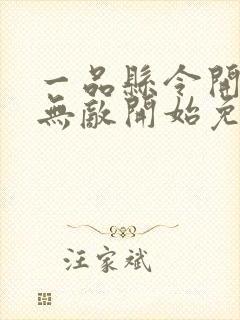 一品縣令開
無敵開始免
汪家斌